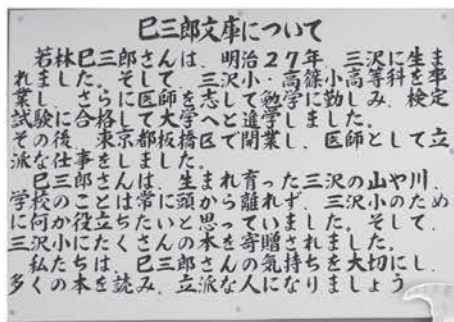 巳三郎文庫について
若林巳三郎さんは、明治27年、三沢に生ま
れました。そして、三沢小・高篠小高等科を卒
業し、さらに医師を志して勉学に勤しみ、検定
試験に合格して大学へと進学しました。
その後、東京都板橋区で開業し、医師として立
派な仕事をしました。
巳三郎さんは、生まれ育った三沢の山や川、
学校のことは常に頭から離れず、三沢小のため
に何か役立ちたいと思っていました。そして、
三沢小にたくさんの本を寄贈されました。
私たちは、巳三郎さんの気持ちを大切にし、
多くの本を読み、立派な人になりましょう